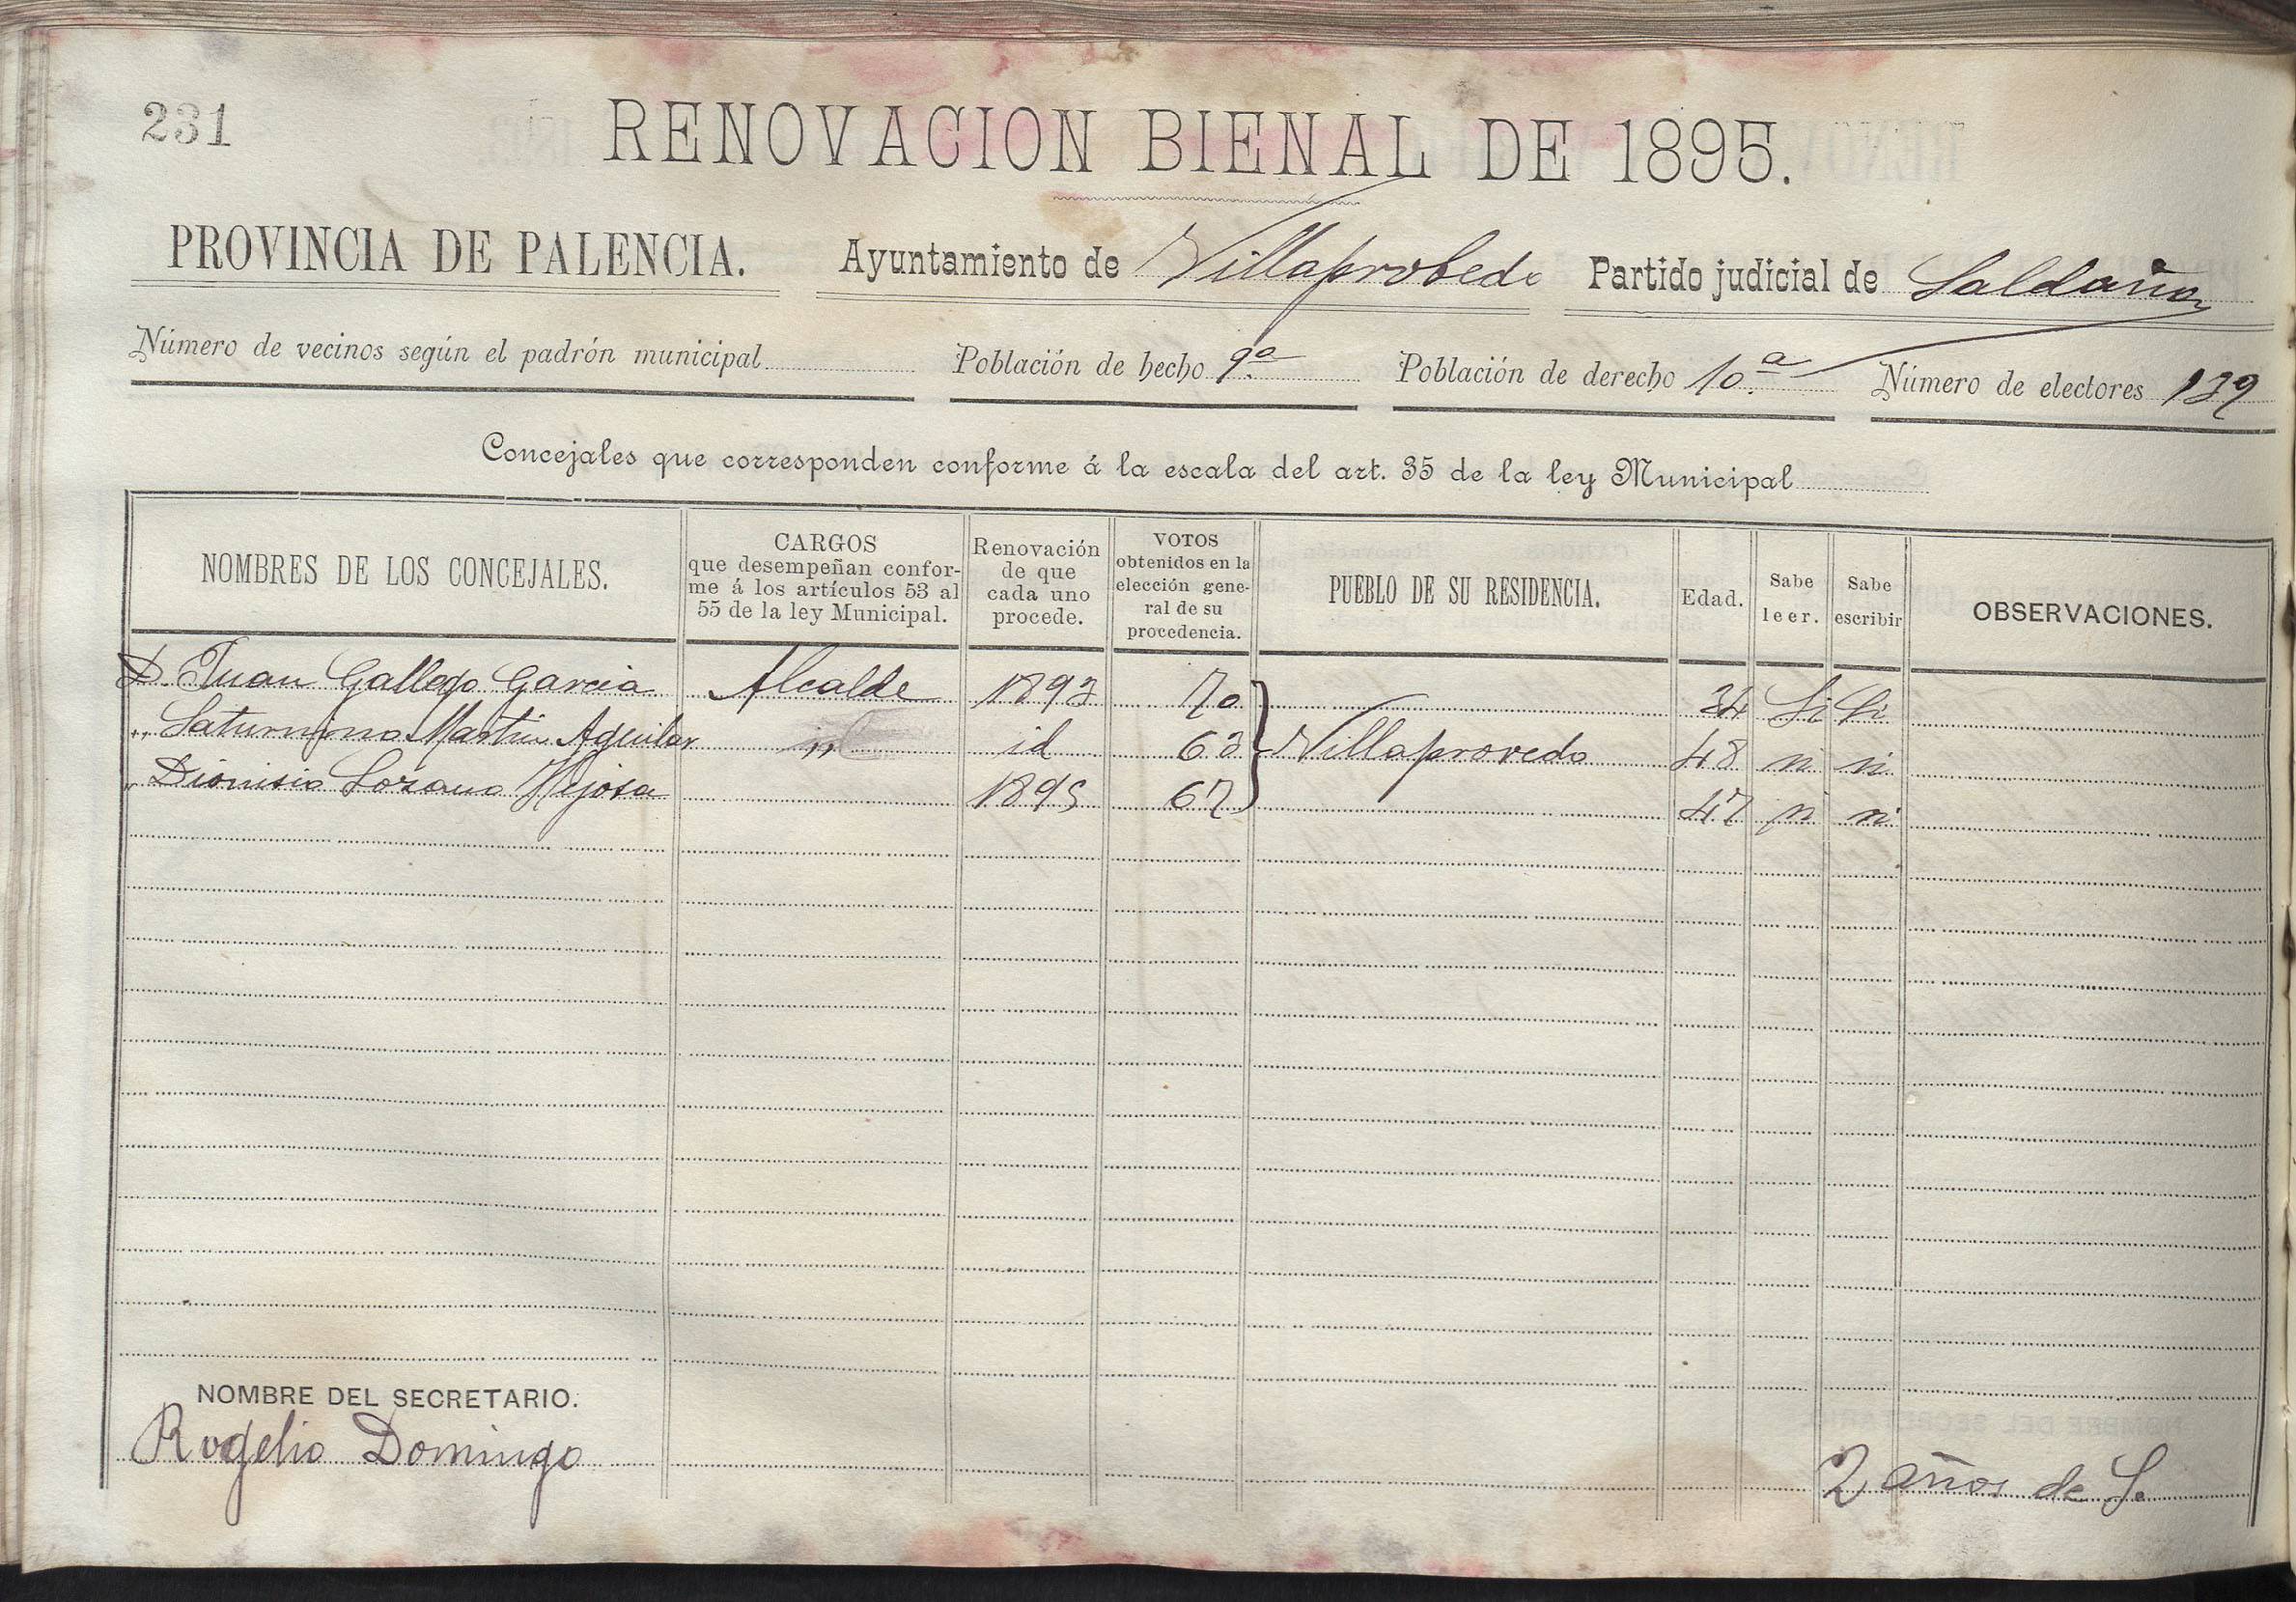 231
RENOVACION BIENAL DE 1895.
PROVINCIA DE PALENCIA. Ayuntamiento de Villaprobedo Partido judicial de Saldaña
Número de vecinos según el padrón municipal Población de hecho 9ª Población de derecho 10.ª Número de electores 139
Concejales que corresponden conforme á la escala del art. 35 de la ley Municipal
NOMBRES DE LOS CONCEJALES.
CARGOS
que desempeñan confor-
me á los artículos 53 al
55 de la ley Municipal.
Renovación
de que
cada uno
procede.
VOTOS
obtenidos en la
elección gene-
ral de su
procedencia.
PUEBLO DE SU RESIDENCIA.
Edad.
Sabe
leer.
Sabe
escribir
OBSERVACIONES.
D. Juan Gallego Garcia Alcalde 1893 70 34 Si Si
" Saturnino Martin Aguilar " id 63 Villaprovedo 48 n n
" Dionisio Lozano Hejosa 1895 67 47 n n
NOMBRE DEL SECRETARIO.
Rogelio Domingo
2 años de S.